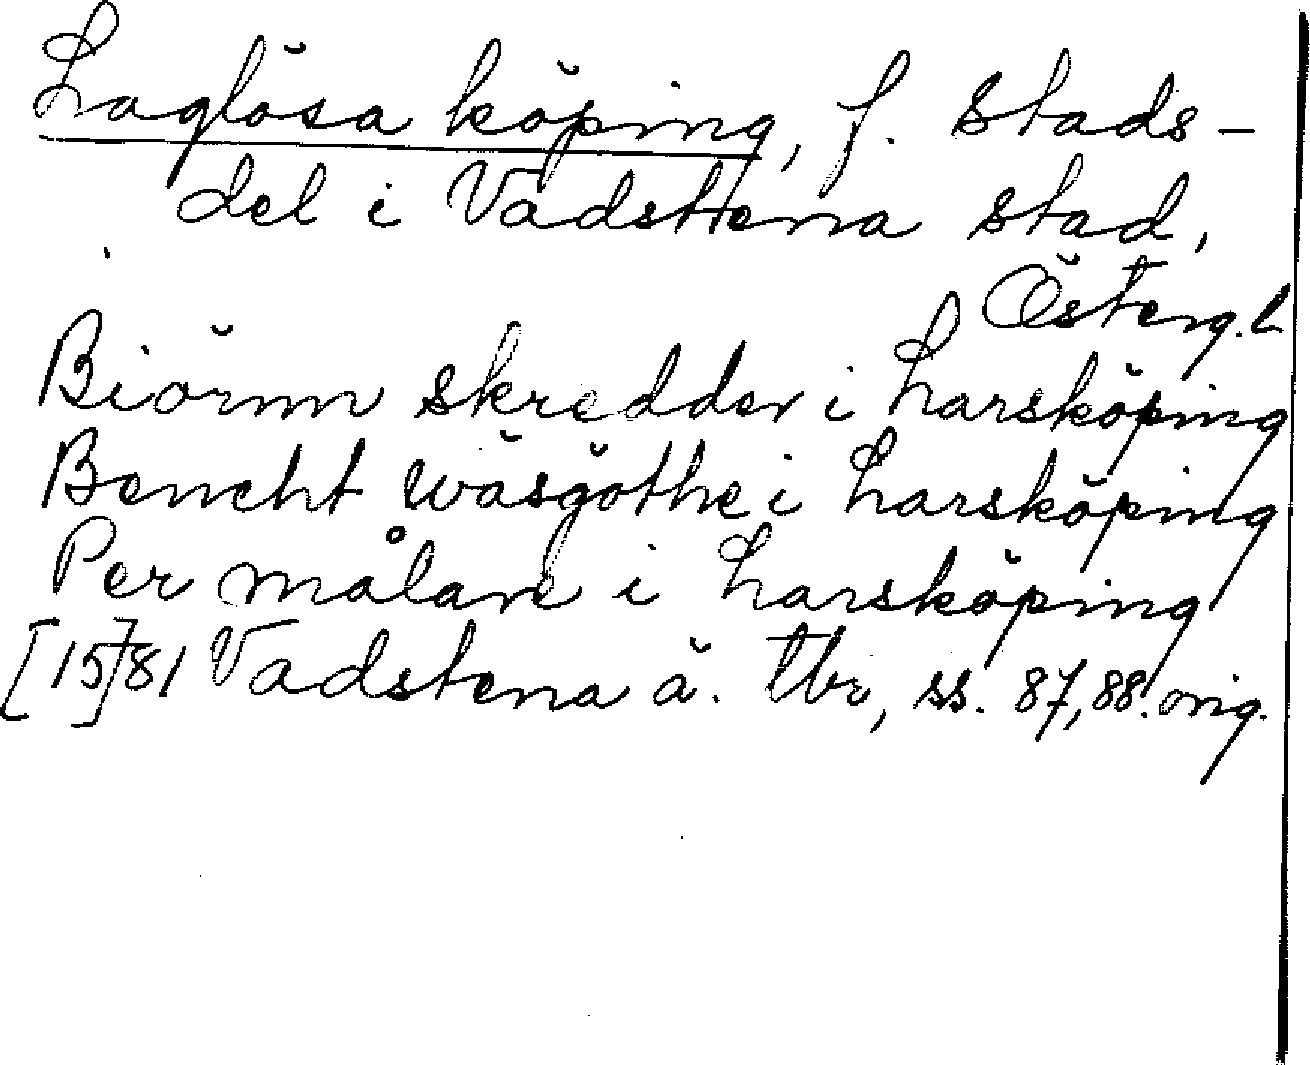 Laglösa köping, f. stads-
del i Vadstena stad,
Österg.l
Biörnn skredder i Larsköping
Bencht wäsgöthe i Larsköping
Per målare i Larsköping
[15]81 Vadstena ä. tbr, ss. 87, 88. orig.